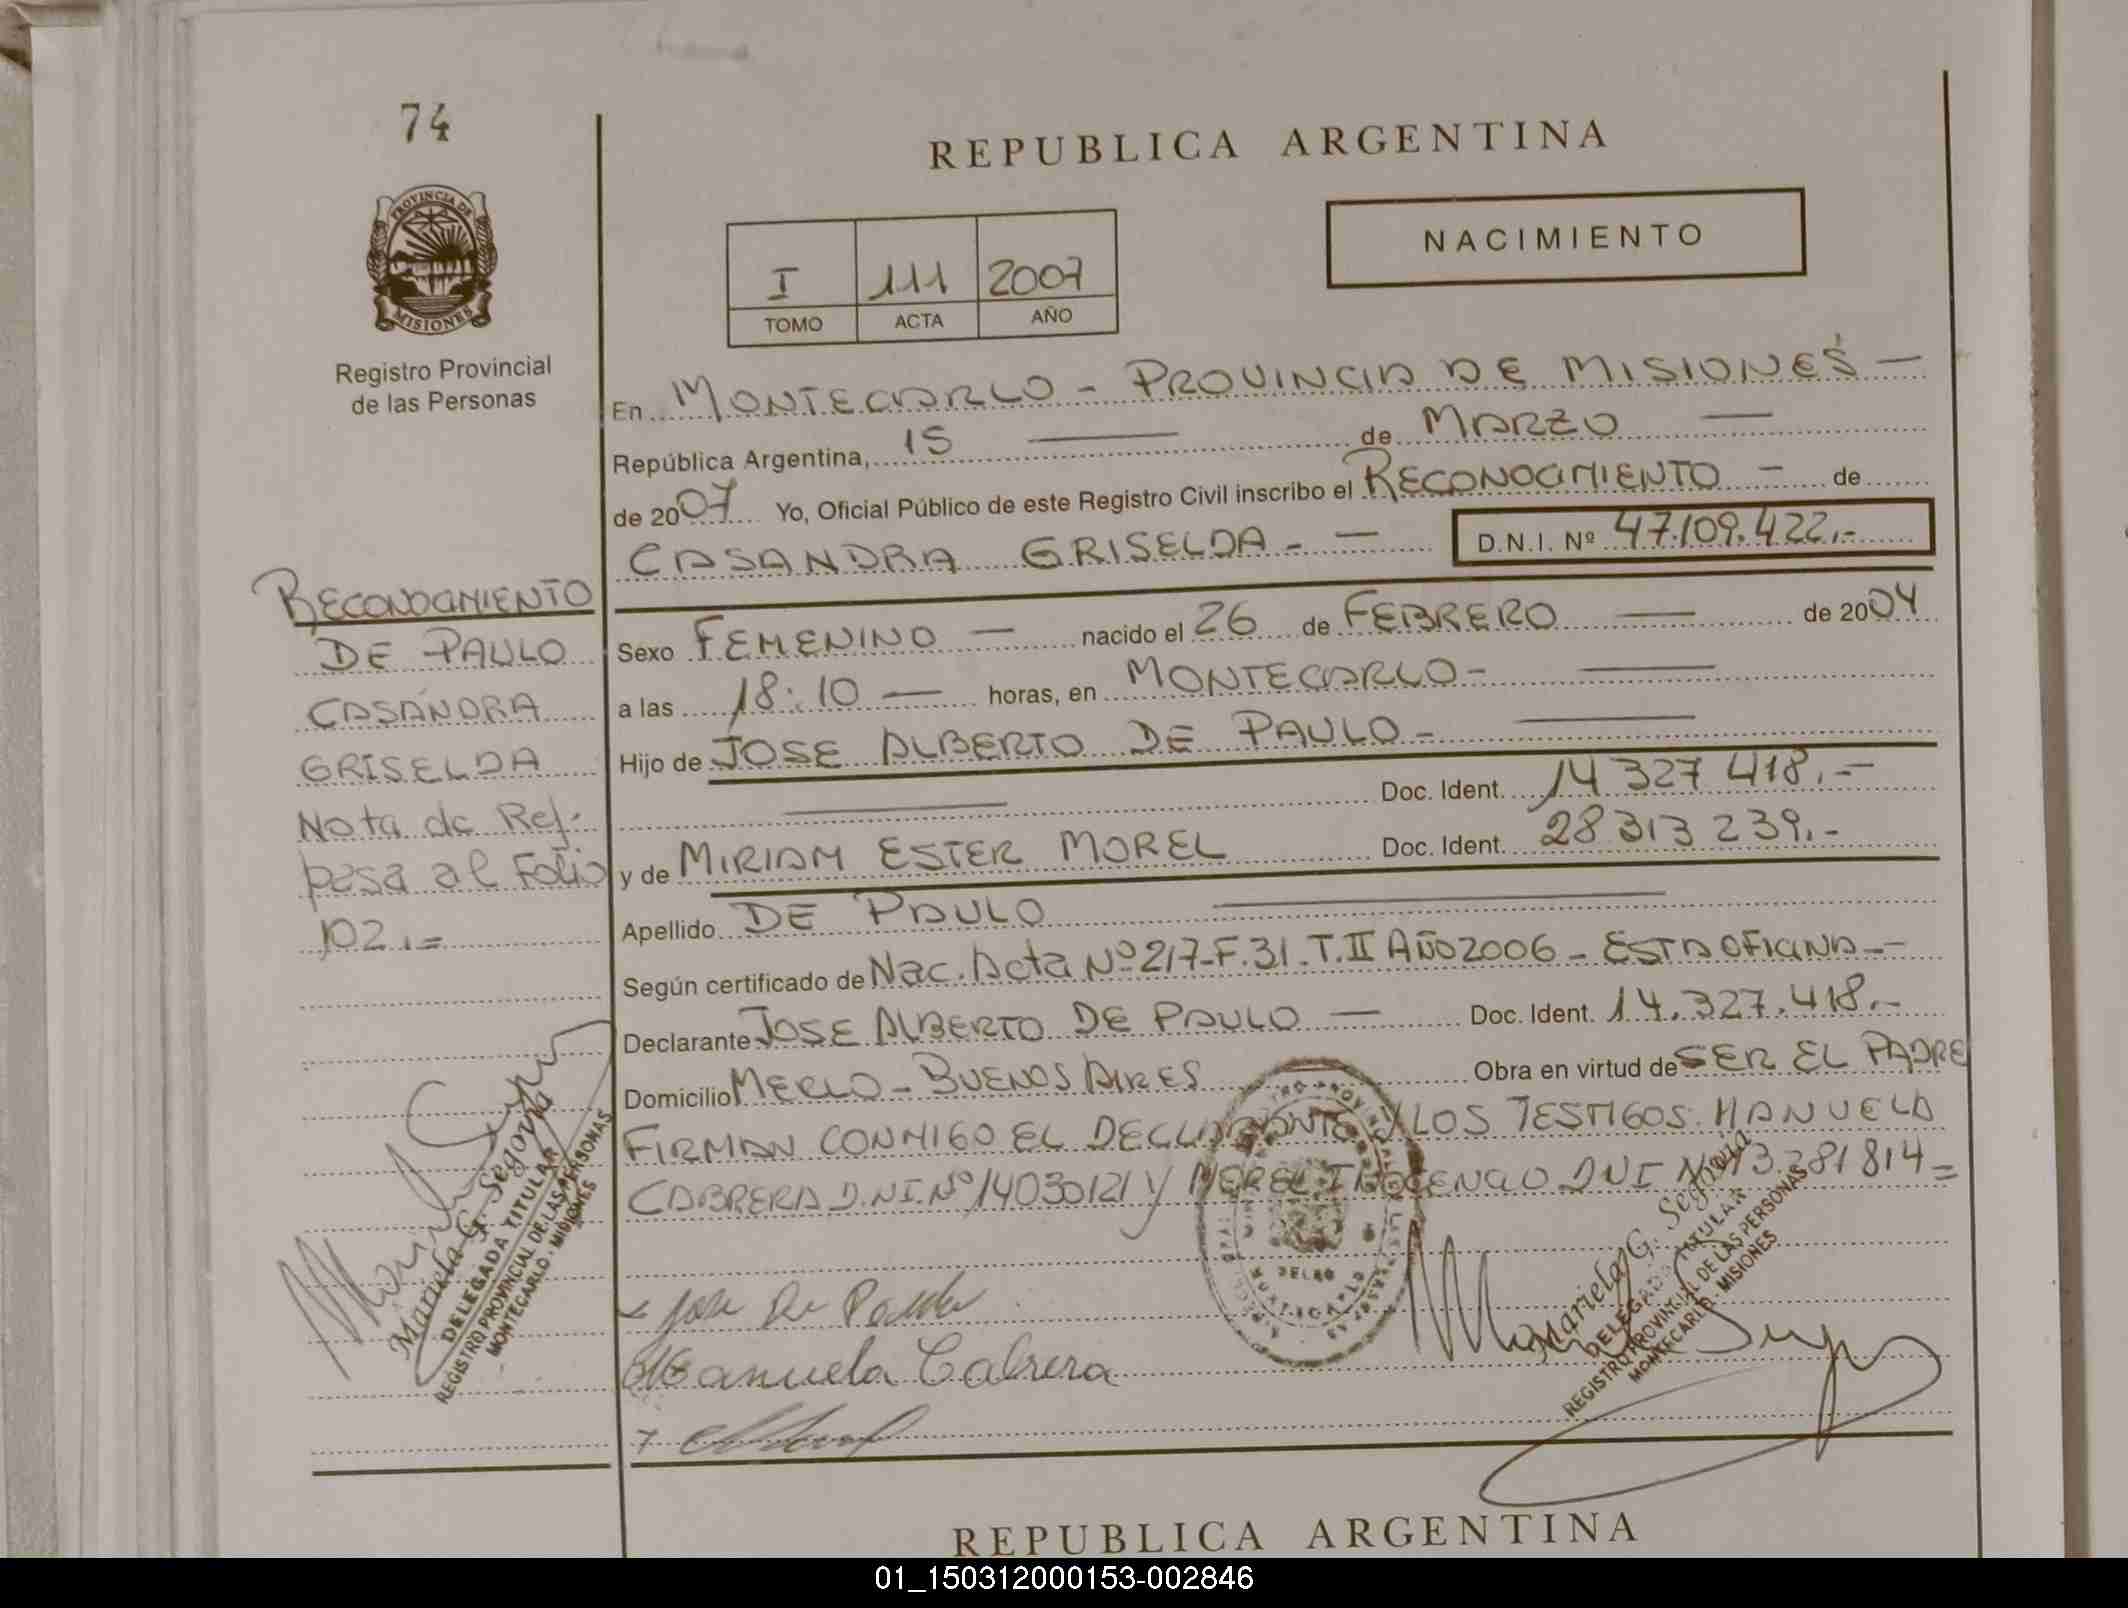 74
PROVINCIA DE
MISIONES
Registro Provincial
de las Personas
REPUBLICA ARGENTINA
NACIMIENTO
I 111 2007
TOMO ACTA AÑO
En MONTECARLO - PROVINCIA DE MISIONES —
República Argentina, 15 — de MARZO —
de 2007 Yo, Oficial Público de este Registro Civil inscribo el RECONOCIMIENTO - de
CASANDRA GRISELDA - — D.N.I. Nº 47.109.422.-
RECONOCIMIENTO
DE PAULO
CASANDRA
GRISELDA
Nota de Ref.
pasa al Folio
102.=
Sexo FEMENINO — nacido el 26 de FEBRERO — de 2004
a las 18:10 — horas, en MONTECARLO- —
Hijo de JOSE ALBERTO DE PAULO- —
— Doc. Ident. 14 327 418.-
y de MIRIAM ESTER MOREL Doc. Ident. 28 313 239.-
Apellido DE PAULO —
Según certificado de Nac. Acta Nº 217-F.31-T.II AÑO 2006 - ESTA OFICINA -
Declarante JOSE ALBERTO DE PAULO — Doc. Ident. 14.327.418.-
Domicilio MERLO - BUENOS AIRES Obra en virtud de SER EL PADRE
FIRMAN CONMIGO EL DECLARANTE Y LOS TESTIGOS: MANUELA
CABRERA D.NI.Nº 14030121 Y MOREL INOCENCIO DNI Nº 13.281814=
Jose De Paulo
Manuela Cabrera
Mariela G. Segovia
DELEGADA TITULAR
REGISTRO PROVINCIAL DE LAS PERSONAS
MONTECARLO - MISIONES
Mariela G. Segovia
DELEGADA TITULAR
REGISTRO PROVINCIAL DE LAS PERSONAS
MONTECARLO - MISIONES
REPUBLICA ARGENTINA
01_150312000153-002846